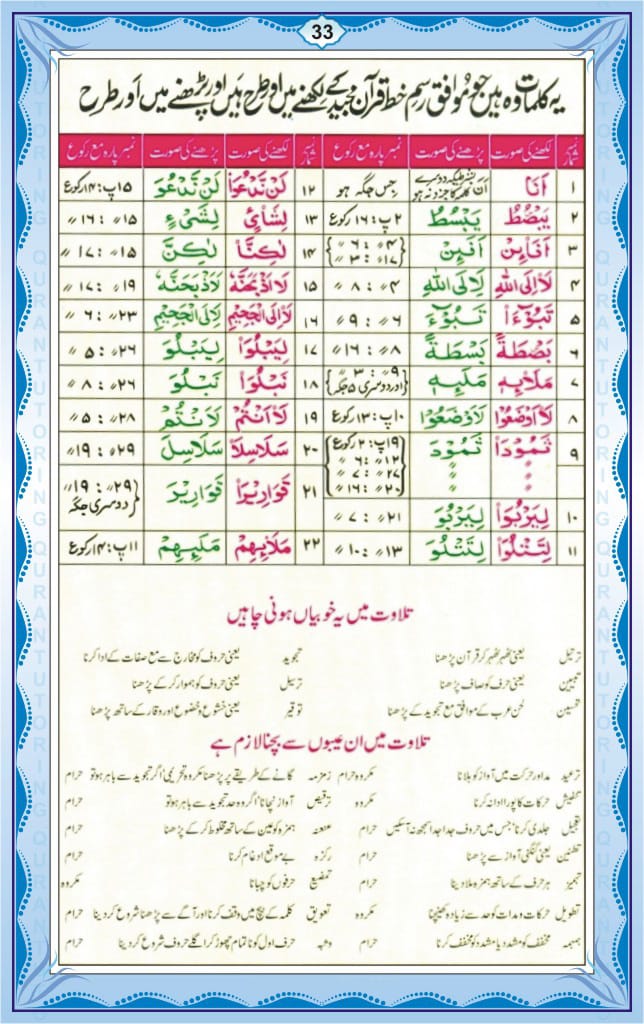 33
یہ کلمات وہ ہیں جو موافق رسم خط قرآن مجید کے لکھنے میں اور طرح ہیں اور پڑھنے میں اور طرح
نمبر شمار لکھنے کی صورت پڑھنے کی صورت نمبر پارہ مع رکوع نمبر شمار لکھنے کی صورت پڑھنے کی صورت نمبر پارہ مع رکوع
۱ اَنَا اَنَ جس جگہ ہو ۱۲ لَنْ نَّدْعُوَا۟ لَنْ نَّدْعُوَ ۱۵پ: ۱۴رکوع
۲ یَبْصُۜطُ یَبْسُطُ ۲پ: ۱۶رکوع ۱۳ لِشَایْءٍ لِشَیْءٍ ۱۵〃: ۱۶〃
۳ اَفَا۟ئِنْ اَفَئِنْ ۴〃: ۶〃 ۱۷〃: ۳〃 ۱۴ لٰكِنَّا۟ لٰكِنَّ ۱۵〃: ۱۷〃
۴ لَا۟اِلَى اللهِ لَاِلَى اللهِ ۴〃: ۸〃 ۱۵ لَا۟اَذْبَحَنَّهٗ لَاَذْبَحَنَّهٗ ۱۹〃: ۱۷〃
۵ تَبُوْٓءَا۟ تَبُوْٓءَ ۶〃: ۹〃 ۱۶ لَا۟اِلَى الْجَحِیْمِ لَاِلَى الْجَحِیْمِ ۲۳〃: ۶〃
۶ بَصْۜطَةً بَسْطَةً ۸〃: ۱۶〃 ۱۷ لِیَبْلُوَا۟ لِیَبْلُوَ ۲۶〃: ۵〃
۷ مَلَا۟ئِهٖ مَلَئِهٖ ۹〃: ۳〃 اور دوسری ۵ جگہ ۱۸ نَبْلُوَا۟ نَبْلُوَ ۲۶〃: ۸〃
۸ لَا۟اَوْضَعُوْا لَاَوْضَعُوْا ۱۰پ: ۱۳رکوع ۱۹ لَا۟اَنْتُمْ لَاَنْتُمْ ۲۸〃: ۵〃
۹ ثَمُوْدَا۟ ثَمُوْدَ ۱۹پ: ۲رکوع ۱۲〃: ۶〃 ۲۷〃: ۷〃 ۲۰〃: ۱۶〃 ۲۰ سَلَاسِلَا۟ سَلَاسِلَ ۲۹〃: ۱۹〃
۲۱ قَوَارِیْرَا۟ قَوَارِیْرَ ۲۹〃: ۱۹〃 دوسری جگہ
۱۰ لِیَرْبُوَا۟ لِیَرْبُوَ ۲۱〃: ۷〃
۱۱ لِتَتْلُوَا۟ لِتَتْلُوَ ۱۳〃: ۱۰〃 ۲۲ مَلَا۟ئِهِمْ مَلَئِهِمْ ۱۱پ: ۱۴رکوع
تلاوت میں یہ خوبیاں ہونی چاہیں
ترتیل یعنی ٹھہر ٹھہر کر قرآن پڑھنا تجوید یعنی حروف کو مخارج سے مع صفات کے ادا کرنا
تبیین یعنی حرف کو صاف پڑھنا ترسیل یعنی حروف کو ہموار کر کے پڑھنا
تحسین لحن عرب کے موافق مع تجوید کے پڑھنا توقیر یعنی خشوع و خضوع اور وقار کے ساتھ پڑھنا
تلاوت میں ان عیبوں سے بچنا لازم ہے
ترعید مد اور حرکت میں آواز کو ہلانا مکروہ حرام زمزمہ گانے کے طریقے پر پڑھنا مکروہ تحریمی اگر تجوید سے باہر ہو تو حرام
حرکات کا پورا ادا نہ کرنا مکروہ ترقیص آواز نچانا اگر وہ حد تجوید سے باہر ہو تو حرام
جلدی کرنا جس میں حروف جدا جدا سمجھ نہ آسکیں حرام عنعنہ ہمزہ کو عین کے ساتھ مخلوط کر کے پڑھنا حرام
یعنی گنگنی آواز سے پڑھنا حرام بے موقع ادغام کرنا حرام
ہر حرف کے ساتھ ہمزہ ملا دینا حرام تمضیغ حرفوں کو چبانا مکروہ
تطویل حرکات و مدات کو حد سے زیادہ کھینچنا مکروہ تعویق کلمہ کے بیچ میں وقف کرنا اور آگے سے پڑھنا شروع کر دینا حرام
ہمہمہ مخفف کو مشدد یا مشدد کو مخفف کرنا حرام وثبہ حرف اول کو ناتمام چھوڑ کر اگلے حروف شروع کر دینا حرام
QURAN TUTORING QURAN TUTORING
QURAN TUTORING QURAN TUTORING